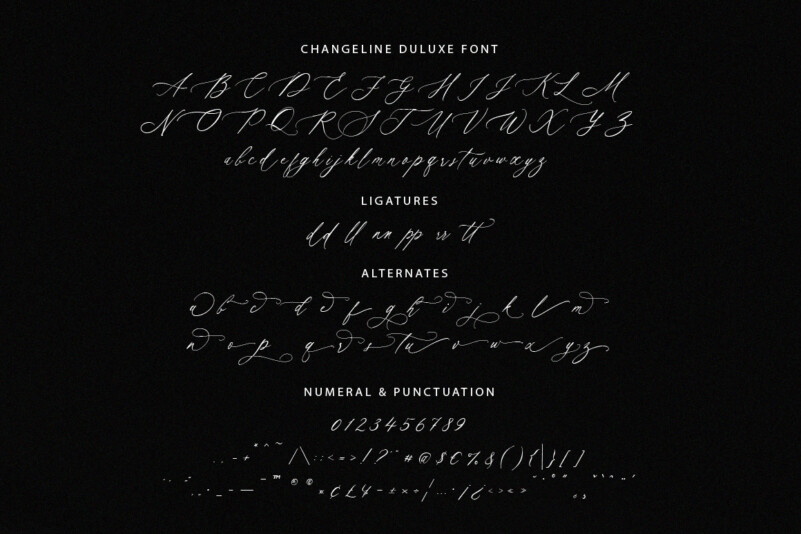 CHANGELINE DULUXE FONT
A B C D E F G H I J K L M
N O P Q R S T U V W X Y Z
abcdefghijklmnopqrstuvwxyz
LIGATURES
dd ll nn pp rr tt
ALTERNATES
a b c d e f g h i j k l m
n o p q r s t u v w x y z
NUMERAL & PUNCTUATION
0123456789
/ \ : ; < = > ! ? # @ $ € % & ( ) { | } [ ]
™ © ® × ¢ £ ¥ - ± × ÷ ¡ ¿ < > < >